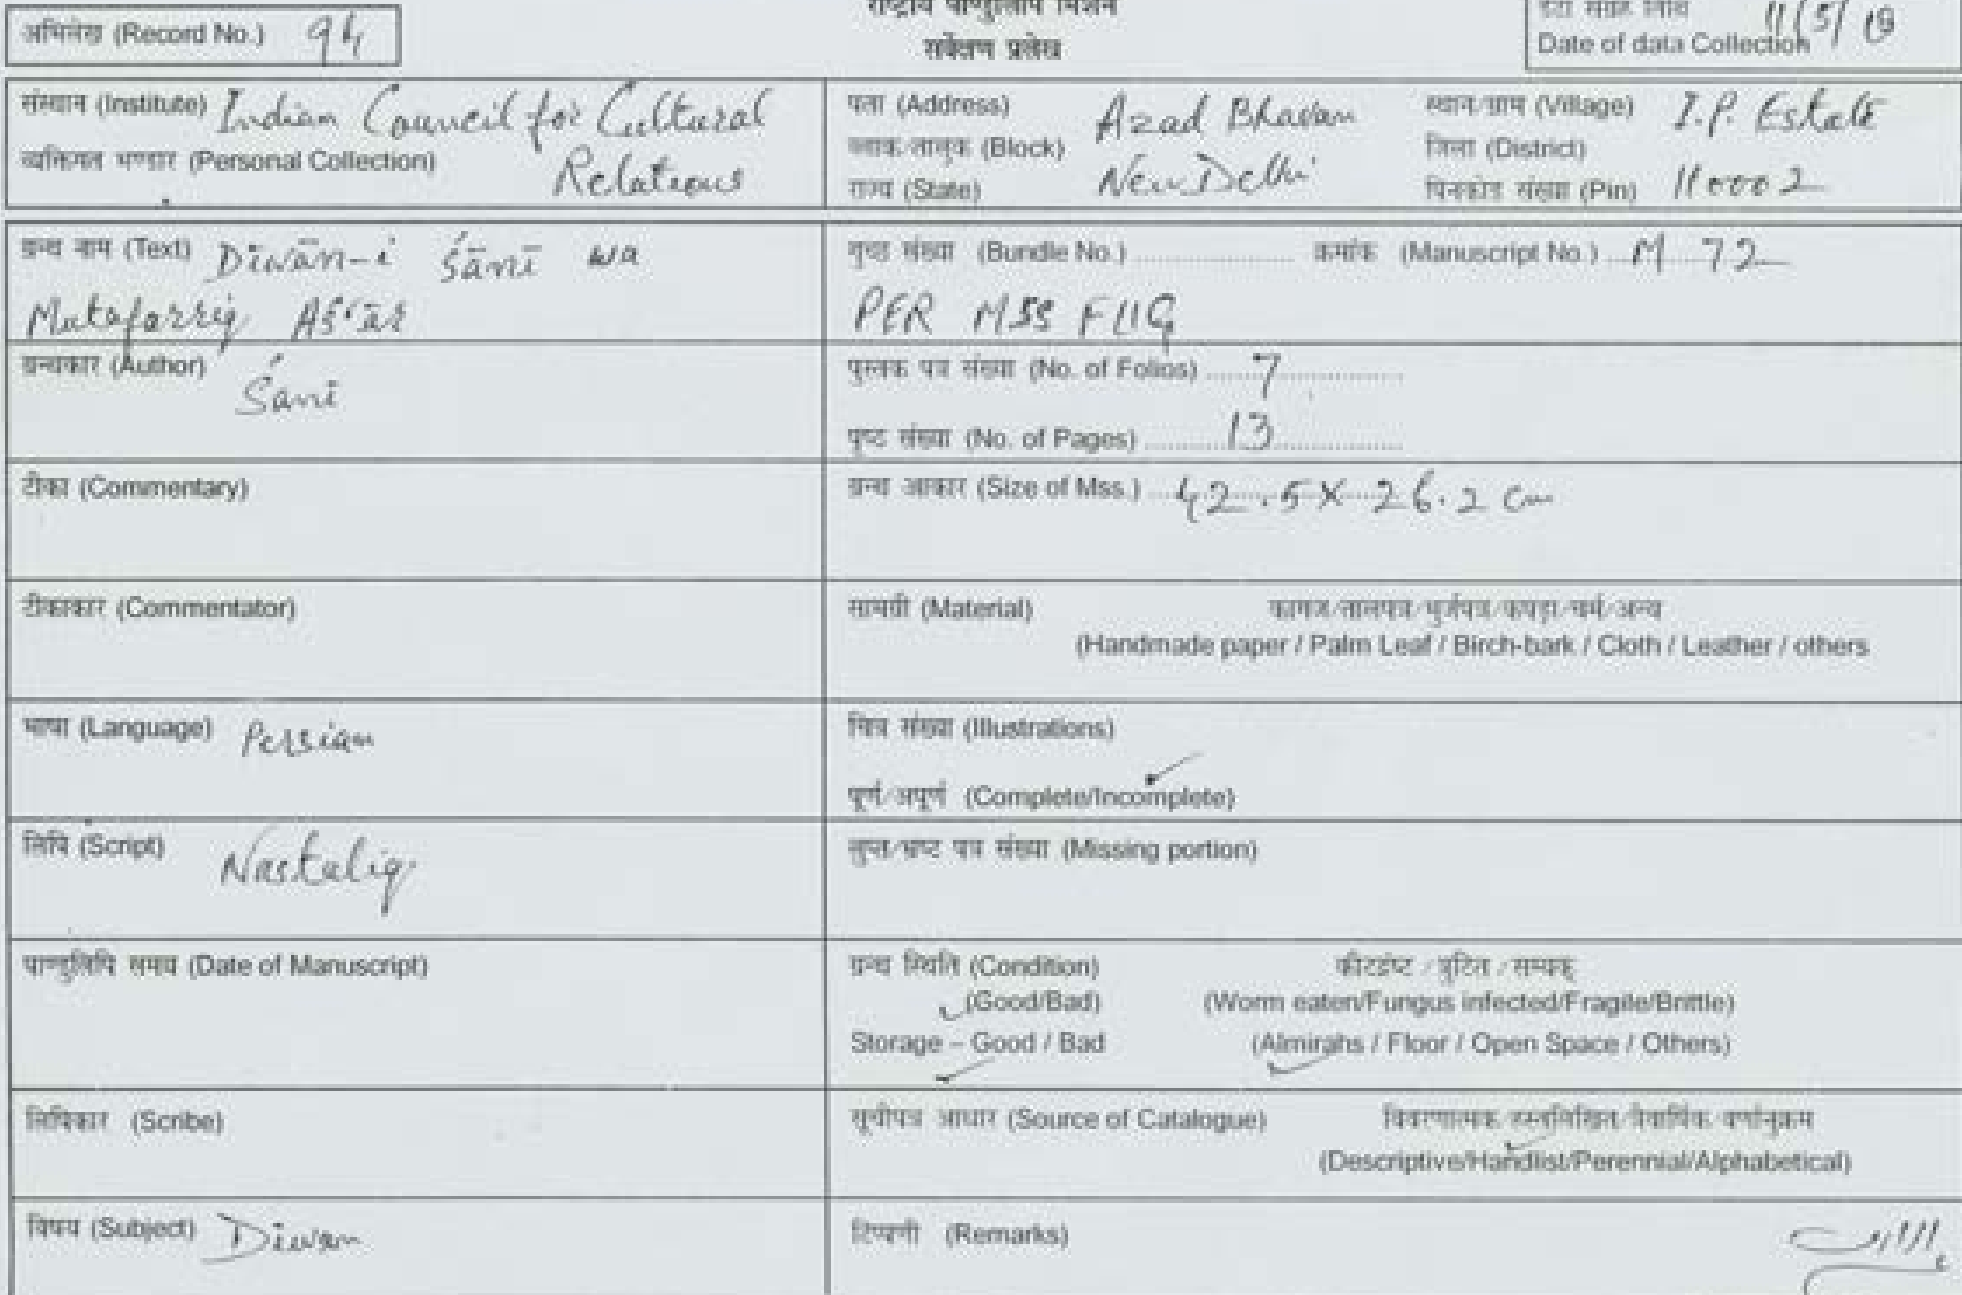 राष्ट्रीय पाण्डुलिपि मिशन
सर्वेक्षण प्रलेख
अभिलेख (Record No.) 94
Date of data Collection 11/5/19
संस्थान (Institute) Indian Council for Cultural
व्यक्तिगत भण्डार (Personal Collection) Relations
पता (Address) Azad Bhavan
ब्लाक/तालुक (Block)
राज्य (State) New Delhi
स्थान/ग्राम (Village) I.P. Estate
जिला (District)
पिनकोड संख्या (Pin) 110002
ग्रन्थ नाम (Text) Diwān-i Śānī wa
Mutafarriq Aś'ār
(Bundle No.) क्रमांक (Manuscript No.) M 72
PER MSS
ग्रन्थकार (Author) Śānī
पुस्तक पत्र संख्या (No. of Folios) 7
पृष्ट संख्या (No. of Pages) 13
टीका (Commentary)
ग्रन्थ आकार (Size of Mss.) 42.5 X 26.2 cm
टीकाकार (Commentator)
सामग्री (Material) कागज/तालपत्र/भुर्जपत्र/कपड़ा/चर्म/अन्य
(Handmade paper / Palm Leaf / Birch-bark / Cloth / Leather / others
भाषा (Language) Persian
चित्र संख्या (Illustrations)
पूर्ण/अपूर्ण (Complete/Incomplete)
लिपि (Script) Nastaliq
लुप्त/भ्रष्ट पत्र संख्या (Missing portion)
पाण्डुलिपि समय (Date of Manuscript)
ग्रन्थ स्थिति (Condition)
(Good/Bad) (Worm eaten/Fungus infected/Fragile/Brittle)
Storage – Good / Bad (Almirahs / Floor / Open Space / Others)
लिपिकार (Scribe)
सूचीपत्र आधार (Source of Catalogue)
(Descriptive/Handlist/Perennial/Alphabetical)
विषय (Subject) Diwan
टिप्पणी (Remarks)